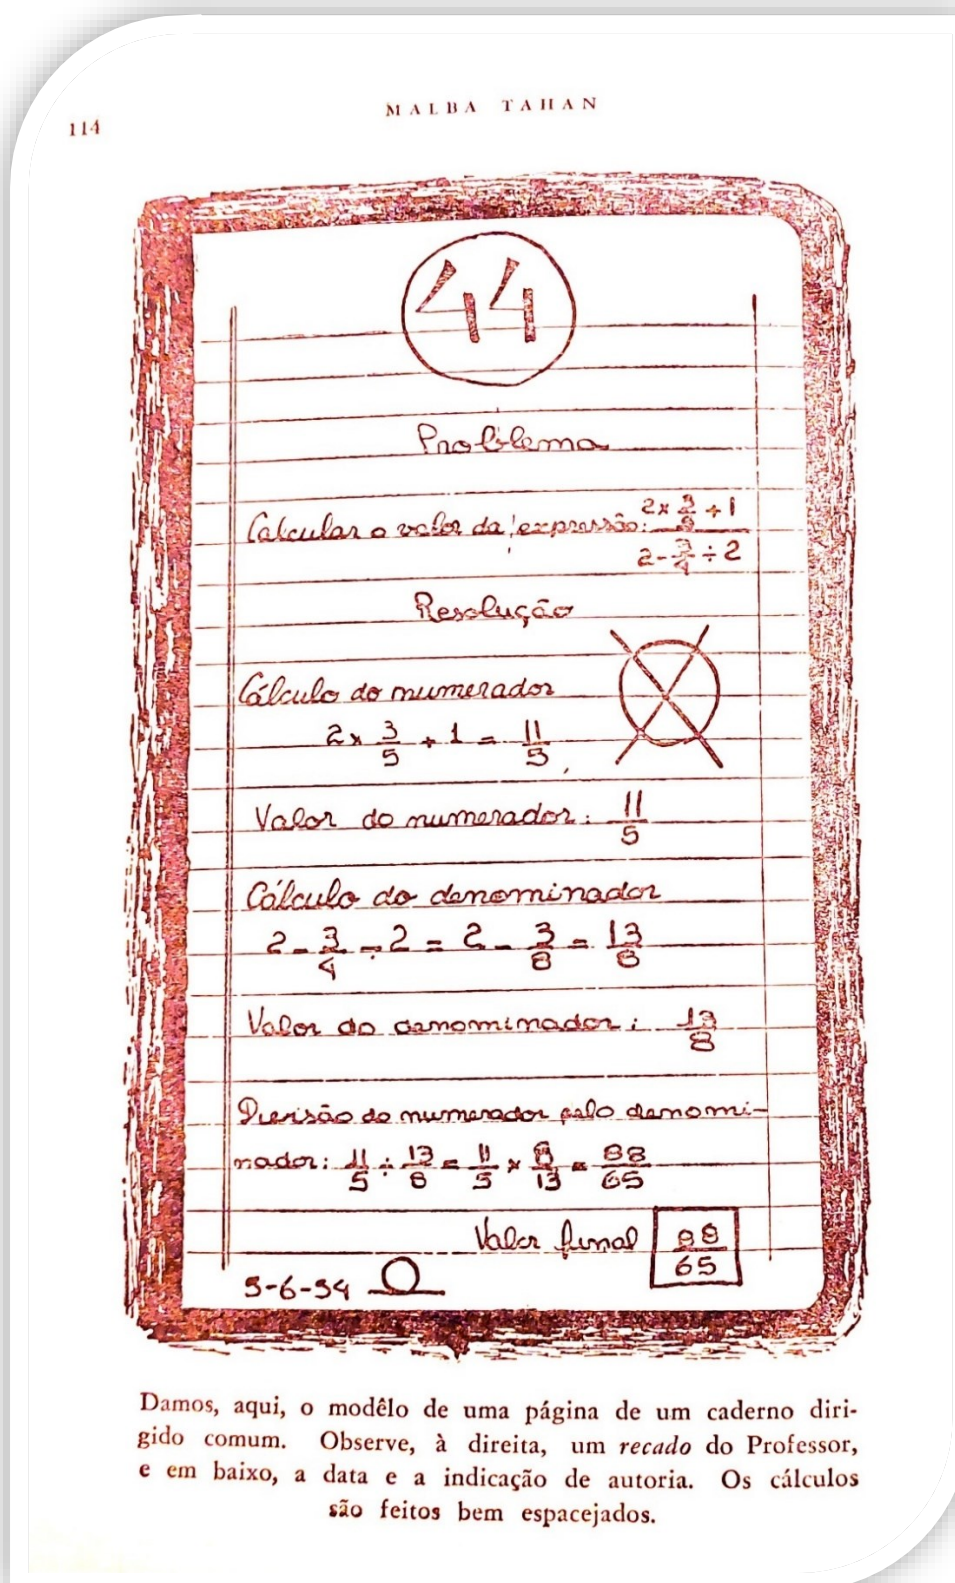 114
MALBA TAHAN
44
Problema
Calcular o valor da expressão: (2 × 3/5 + 1)/(2 - 3/4 ÷ 2)
Resolução
Cálculo do numerador
2 × 3/5 + 1 = 11/5
Valor do numerador: 11/5
Cálculo do denominador
2 - 3/4 ÷ 2 = 2 - 3/8 = 13/8
Valor do denominador: 13/8
Divisão do numerador pelo denomi-
nador: 11/5 ÷ 13/8 = 11/5 × 8/13 = 88/65
Valor final 88/65
5-6-54
Damos, aqui, o modêlo de uma página de um caderno diri-
gido comum. Observe, à direita, um recado do Professor,
e em baixo, a data e a indicação de autoria. Os cálculos
são feitos bem espacejados.